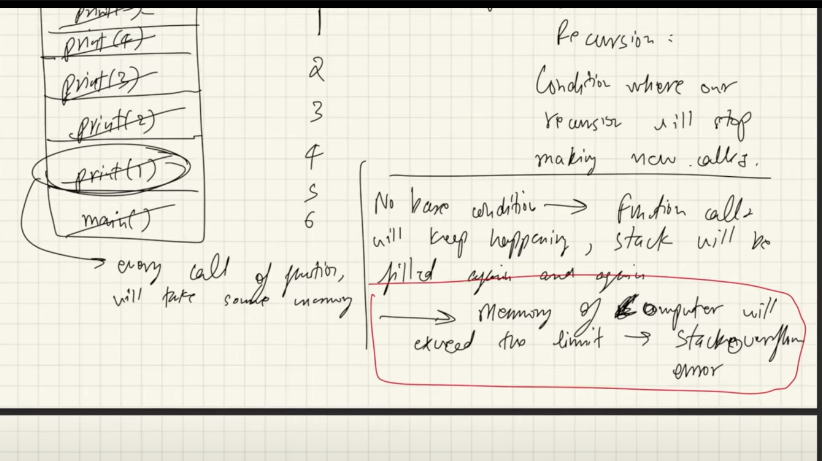 print(4)
print(3)
print(2)
print(1)
main()
1
2
3
4
5
6
every call of function,
will take some memory
Recursion :
Condition where our
recursion will stop
making new calls.
No base condition → function calls
will keep happening, stack will be
filled again and again
→ Memory of Computer will
exceed the limit → Stackoverflow
error